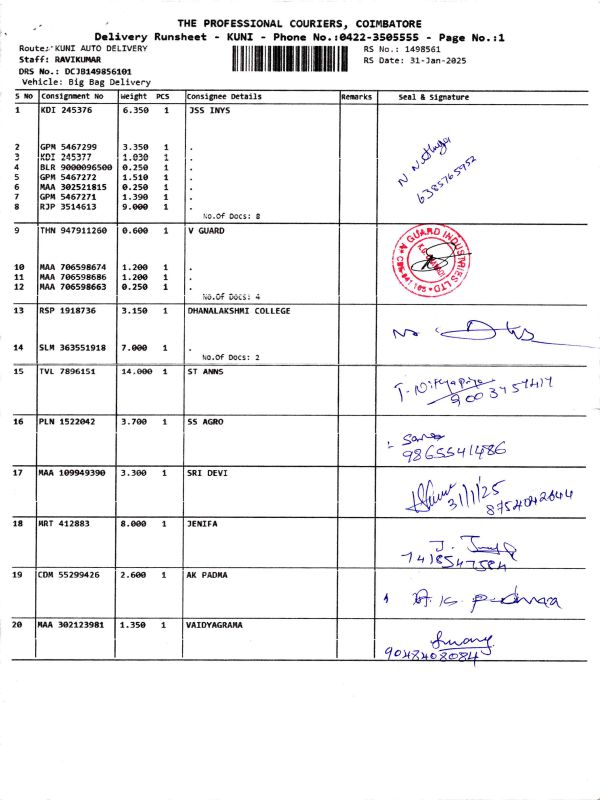 THE PROFESSIONAL COURIERS, COIMBATORE
Delivery Runsheet - KUNI - Phone No.:0422-3505555 - Page No.:1
Route: KUNI AUTO DELIVERY
RS No.: 1498561
Staff: RAVIKUMAR
RS Date: 31-Jan-2025
DRS No.: DCJB149856101
Vehicle: Big Bag Delivery
S No Consignment No Weight PCS Consignee Details Remarks Seal & Signature
1 KDI 245376 6.350 1 JSS INYS
2 GPM 5467299 3.350 1 .
3 KDI 245377 1.030 1 .
4 BLR 9000096500 0.250 1 .
5 GPM 5467272 1.510 1 .
6 MAA 302521815 0.250 1 .
7 GPM 5467271 1.390 1 .
8 RJP 3514613 9.000 1 .
No.Of Docs: 8
6385765952
9 THN 947911260 0.600 1 V GUARD
V GUARD INDUSTRIES LTD
10 MAA 706598674 1.200 1 .
11 MAA 706598686 1.200 1 .
12 MAA 706598663 0.250 1 .
No.Of Docs: 4
13 RSP 1918736 3.150 1 DHANALAKSHMI COLLEGE
14 SLM 363551918 7.000 1 .
No.Of Docs: 2
15 TVL 7896151 14.000 1 ST ANNS
T. Nithyapriya
9003457417
16 PLN 1522042 3.700 1 SS AGRO
9865541486
17 MAA 109949390 3.300 1 SRI DEVI
31/1/25
8754042644
18 MRT 412883 8.000 1 JENIFA
7418547584
19 CDM 55299426 2.600 1 AK PADMA
A. K. Padmaa
20 MAA 302123981 1.350 1 VAIDYAGRAMA
9048408084